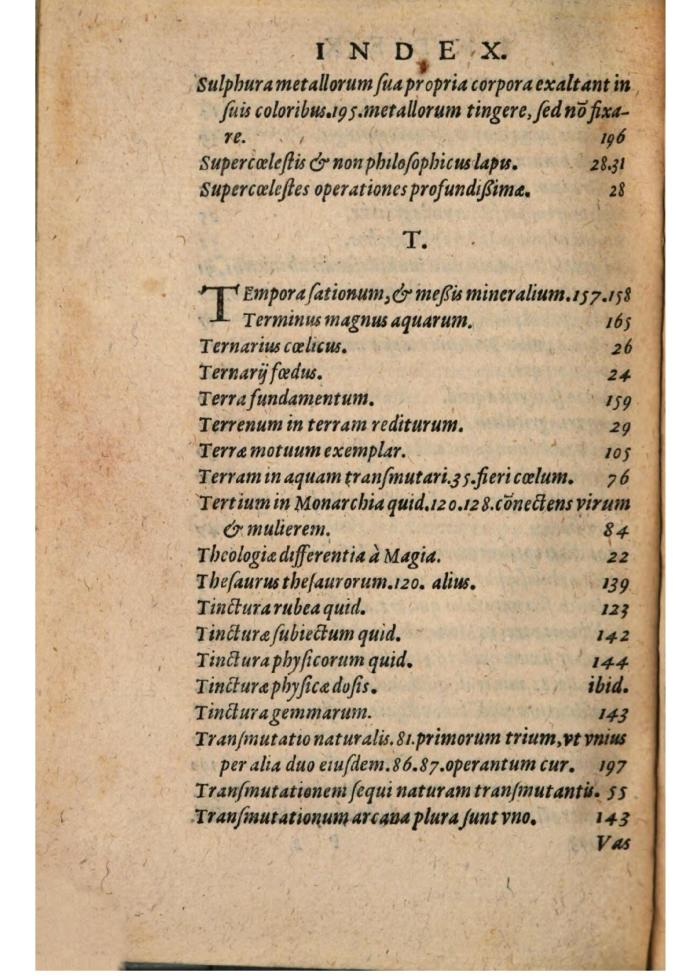 INDEX.
Sulphura metallorum ſua propria corpora exaltant in
ſuis coloribus.195.metallorum tingere, ſed nō fixa-
re. 196
Supercœleſtis & non philoſophicus lapis. 28.31
Supercœleſtes operationes profundißimæ. 28
T.
TEmpora ſationum, & meßis mineralium.157.158
Terminus magnus aquarum. 165
Ternarius cœlicus. 26
Ternarij fœdus. 24
Terra fundamentum. 159
Terrenum in terram rediturum. 29
Terræ motuum exemplar. 105
Terram in aquam tranſmutari.35.fieri cœlum. 76
Tertium in Monarchia quid.120.128.cōnectens virum
& mulierem. 84
Theologiæ differentia à Magia. 22
Theſaurus theſaurorum.120. alius. 139
Tinctura rubea quid. 123
Tincturæ ſubiectum quid. 142
Tinctura phyſicorum quid. 144
Tincturæ phyſicæ doſis. ibid.
Tinctura gemmarum. 143
Tranſmutatio naturalis.81.primorum trium, vt vnius
per alia duo eiuſdem.86.87.operantum cur. 197
Tranſmutationem ſequi naturam tranſmutantis. 55
Tranſmutationum arcana plura ſunt vno. 143
Vas